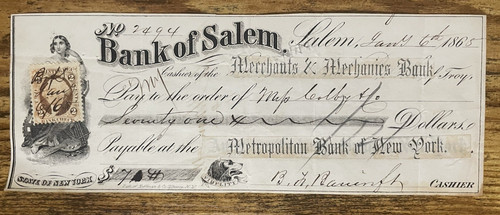 No 2494
Bank of Salem.
Salem, Jany 6th 1865
Cashier of the Merchants & Mechanics Bank of Troy,
Pay to the order of Mess Colby & Co
Seventy one & Dollars,
Payable at the Metropolitan Bank of New York.
STATE OF NEW YORK
$ 71
FIDELITY
B. F. Bancroft CASHIER